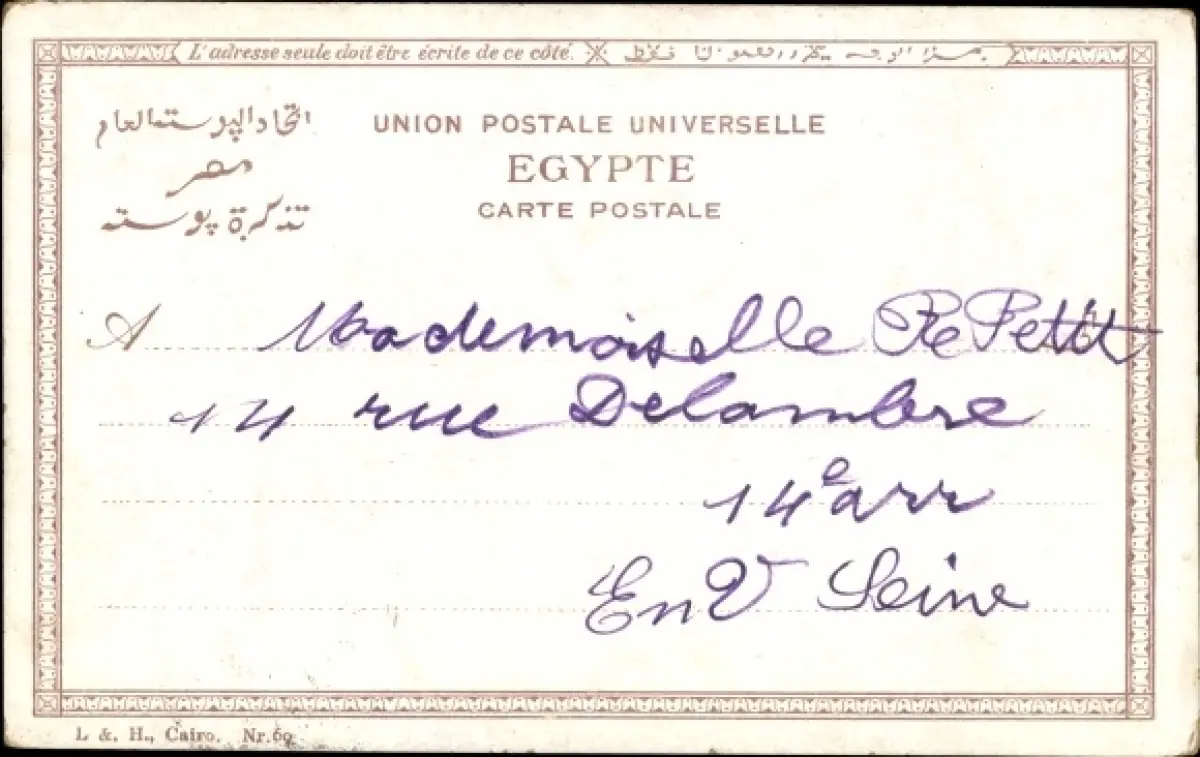 L'adresse seule doit être écrite de ce côté.
اتحاد البوسته العام
مصر
تذكرة بوسته
UNION POSTALE UNIVERSELLE
EGYPTE
CARTE POSTALE
A Mademoiselle Petit
14 rue Delambre
14e arr
En V Seine
L & H., Cairo. Nr. 69